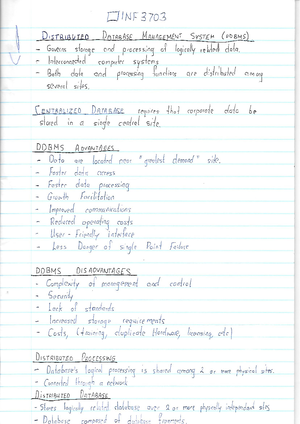 INF3703
DISTRIBUTED DATABASE MANAGEMENT SYSTEM (DDBMS)
- Governs storage and processing of logically related data.
- Interconnected computer systems
- Both data and processing functions are distributed among
several sites.
CENTRALIZED DATABASE requires that corporate data be
stored in a single central site.
DDBMS ADVANTAGES
- Data are located near "greatest demand" side.
- Faster data access
- Faster data processing
- Growth Facilitation
- Improved communications
- Reduced operating costs
- User-Friendly interface
- Less Danger of single Point Failure
DDBMS DISADVANTAGES
- Complexity of management and control
- Security
- Lack of standards
- Increased storage requirements
- Costs, (training, duplicate Hardware, licensing, etc)
DISTRIBUTED PROCESSING
- Database's logical processing is shared among 2 or more physical sites.
- Connected through a network
DISTRIBUTED DATABASE
- Stores logically related database over 2 or more physically independent sites
- Database composed of database fragments.